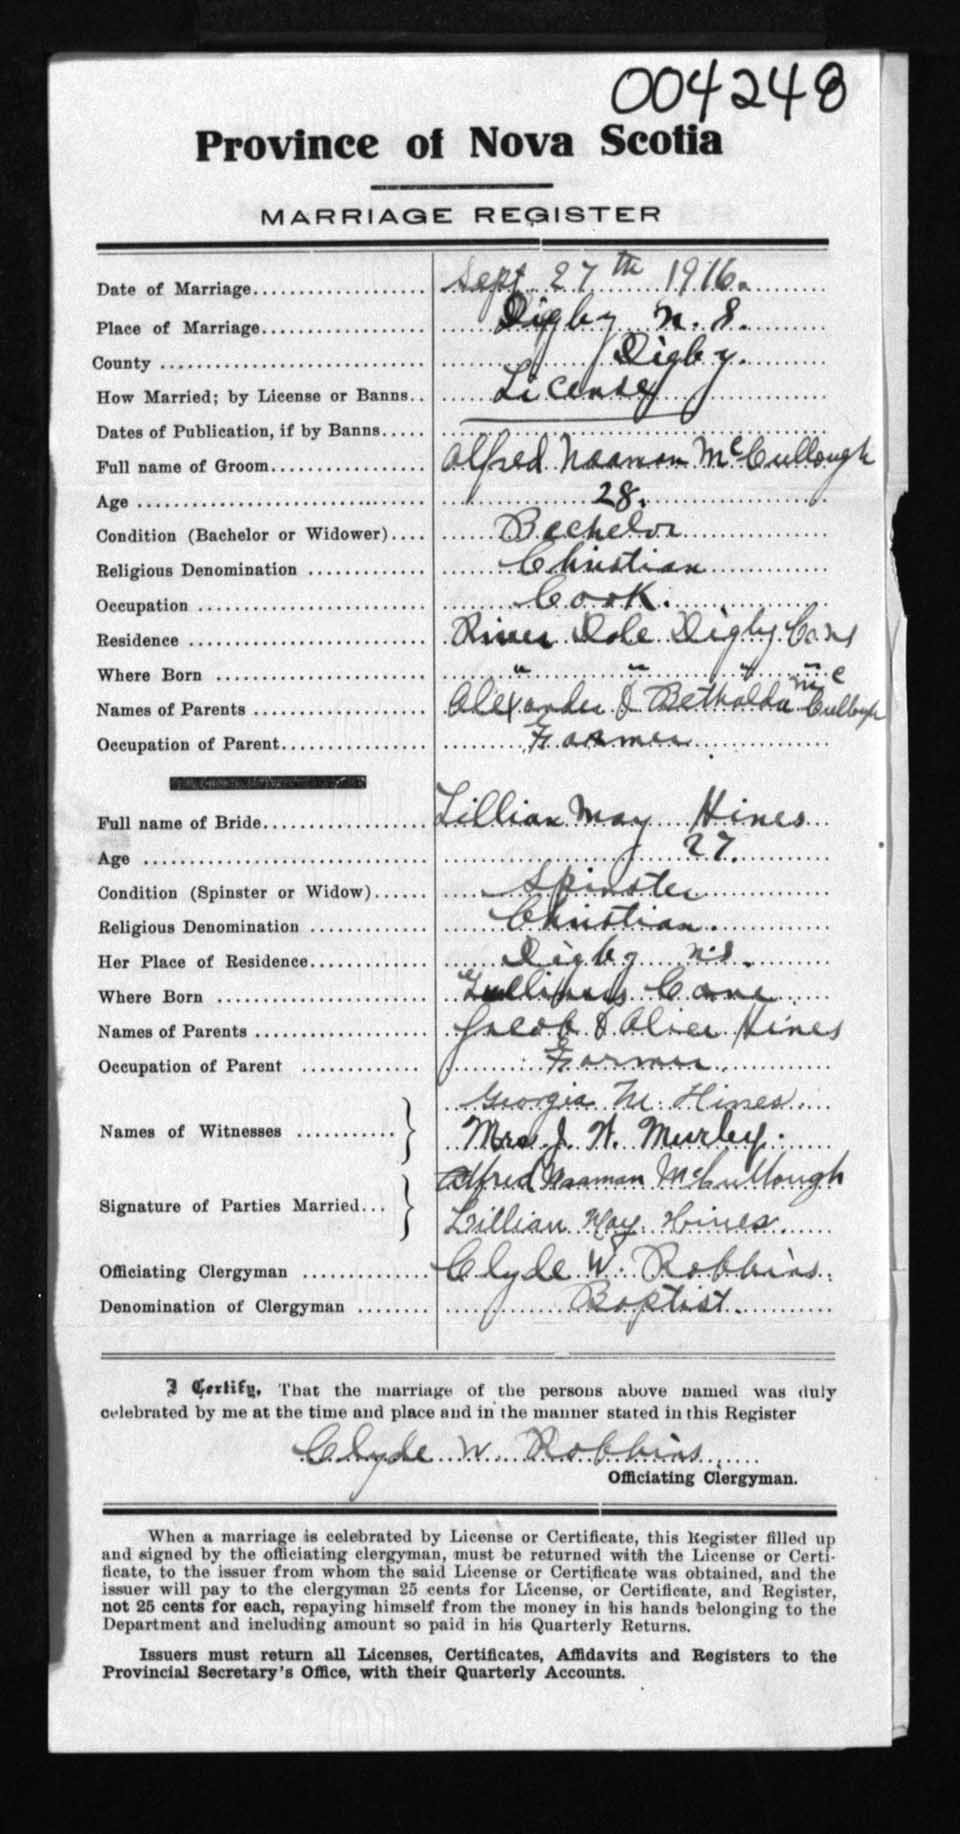 004248
Province of Nova Scotia
MARRIAGE REGISTER
Date of Marriage Sept 27th 1916.
Place of Marriage Digby N. S.
County Digby.
How Married; by License or Banns License
Dates of Publication, if by Banns
Full name of Groom Alfred Naaman McCullough
Age 28.
Condition (Bachelor or Widower) Bachelor
Religious Denomination Christian
Occupation Cook.
Residence River Dale Digby Co. N S
Where Born " " " "
Names of Parents Alexander & McCullough
Occupation of Parent Farmer
Full name of Bride Lillian May Hines
Age 27.
Condition (Spinster or Widow) Spinster
Religious Denomination Christian.
Her Place of Residence Digby N.S.
Where Born Gullivers Cove
Names of Parents Jacob & Alice Hines
Occupation of Parent Farmer
Georgia M. Hines.
Names of Witnesses
Mrs. J. W. Murley.
Alfred Naaman McCullough
Signature of Parties Married
Lillian May Hines.
Officiating Clergyman Clyde W. Robbins.
Denomination of Clergyman Baptist.
I Certify, That the marriage of the persons above named was duly
celebrated by me at the time and place and in the manner stated in this Register
Clyde W. Robbins
Officiating Clergyman.
When a marriage is celebrated by License or Certificate, this Register filled up
and signed by the officiating clergyman, must be returned with the License or Certi-
ficate, to the issuer from whom the said License or Certificate was obtained, and the
issuer will pay to the clergyman 25 cents for License, or Certificate, and Register,
not 25 cents for each, repaying himself from the money in his hands belonging to the
Department and including amount so paid in his Quarterly Returns.
Issuers must return all Licenses, Certificates, Affidavits and Registers to the
Provincial Secretary's Office, with their Quarterly Accounts.